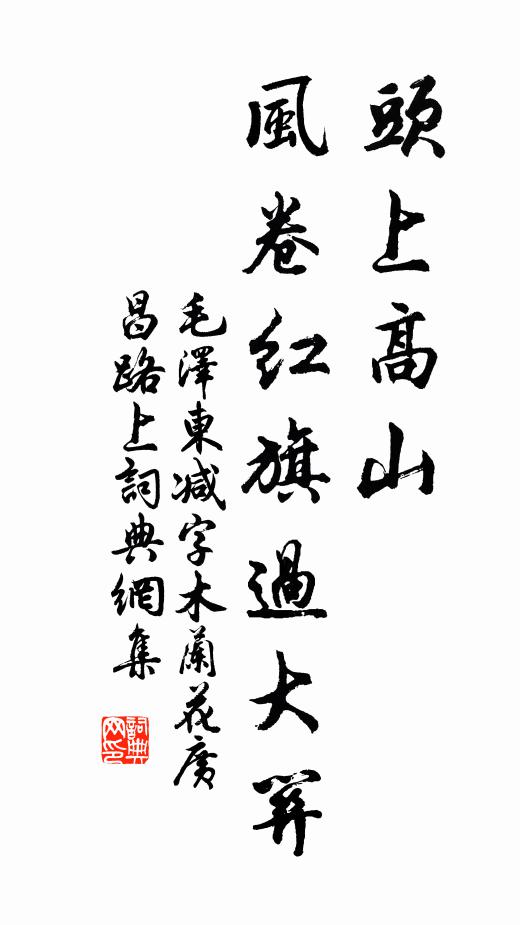 頭上高山
風卷紅旗過大關
毛澤東减字木蘭花廣
昌路上詞典網集
詞典网印